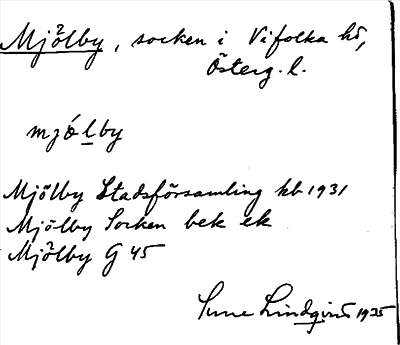 Mjölby, socken i Vifolka hd,
Österg. l.
mjólby
Mjölby Stadsförsamling kb 1931
Mjölby Socken bek ek
Mjölby G 45
Sune Lindqvist 1925